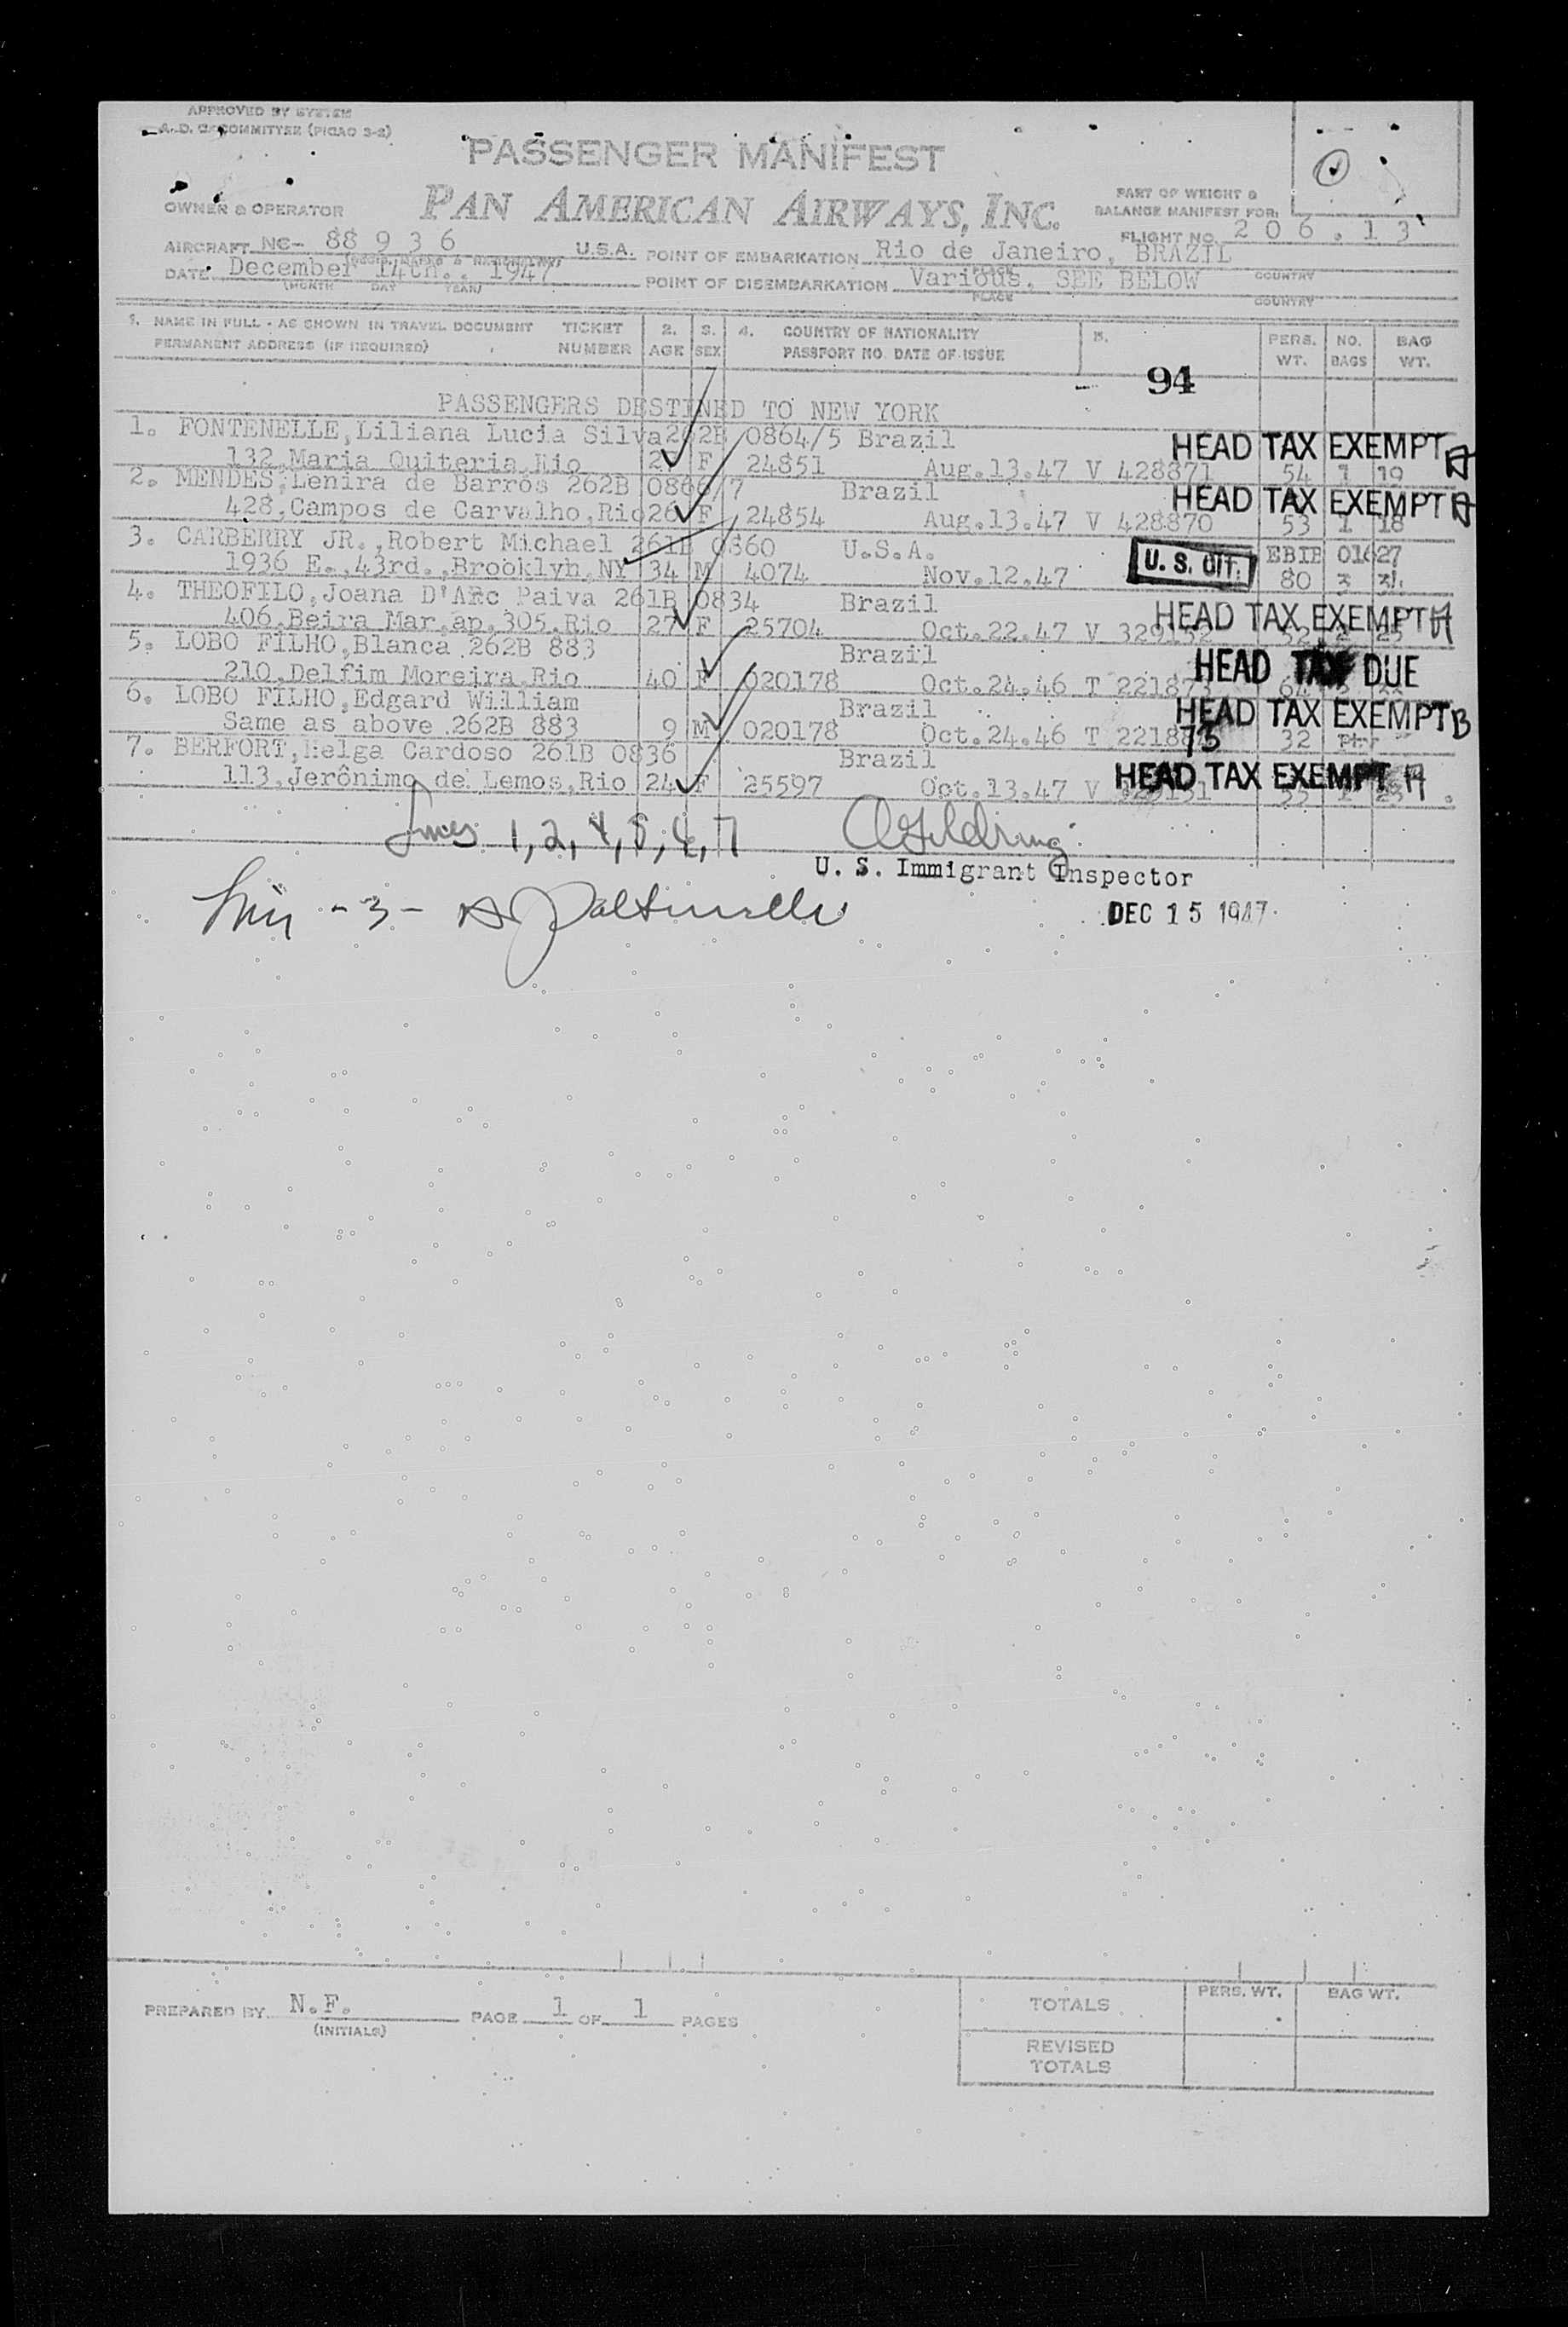 APPROVED BY SYSTEM
A. D. C. COMMITTEE (PICAO 3-2)
PASSENGER MANIFEST
OWNER & OPERATOR PAN AMERICAN AIRWAYS, INC.
PART OF WEIGHT &
BALANCE MANIFEST FOR:
FLIGHT NO. 206.13
AIRCRAFT NC- 88936 U.S.A. POINT OF EMBARKATION Rio de Janeiro, BRAZIL
DATE December 14th.. 1947 POINT OF DISEMBARKATION Various, SEE BELOW
(MONTH DAY YEAR) PLACE COUNTRY
1. NAME IN FULL - AS SHOWN IN TRAVEL DOCUMENT TICKET 2. 3. 4. COUNTRY OF NATIONALITY 5. PERS. NO. BAG
PERMANENT ADDRESS (IF REQUIRED) NUMBER AGE SEX PASSPORT NO. DATE OF ISSUE WT. BAGS WT.
94
PASSENGERS DESTINED TO NEW YORK
1. FONTENELLE, Liliana Lucia Silva 262B 0864/5 Brazil HEAD TAX EXEMPT A
132, Maria Quiteria, Rio F 24851 Aug.13.47 V 428871 54 1 19
2. MENDES, Lenira de Barros 262B 0866/7 Brazil HEAD TAX EXEMPT A
428, Campos de Carvalho, Rio 26 F 24854 Aug.13.47 V 428870 53 1 18
3. CARBERRY JR., Robert Michael 261B 0860 U.S.A. U. S. CIT. EBIE 01627
1936 E., 43rd., Brooklyn, NY 34 M 4074 Nov.12.47 80 3
4. THEOFILO, Joana D'Arc Paiva 261B 0834 Brazil HEAD TAX EXEMPT A
406, Beira Mar, ap. 305, Rio 27 F 25704 Oct.22.47 V
5. LOBO FILHO, Blanca 262B 883 Brazil HEAD TAX DUE
210, Delfim Moreira, Rio 40 F 020178 Oct.24.46 T 221873
6. LOBO FILHO, Edgard William Brazil HEAD TAX EXEMPT B
Same as above 262B 883 9 M 020178 Oct.24.46 T 32
7. BERFORT, Helga Cardoso 261B 0836 Brazil HEAD TAX EXEMPT A
113, Jerônimo de Lemos, Rio 24 F 25597 Oct.13.47 V
Lines 1, 2, 4, 5, 6, 7
U. S. Immigrant Inspector
- 3 -
DEC 15 1947
PREPARED BY N.F. PAGE 1 OF 1 PAGES
(INITIALS)
PERS. WT. BAG WT.
TOTALS
REVISED
TOTALS